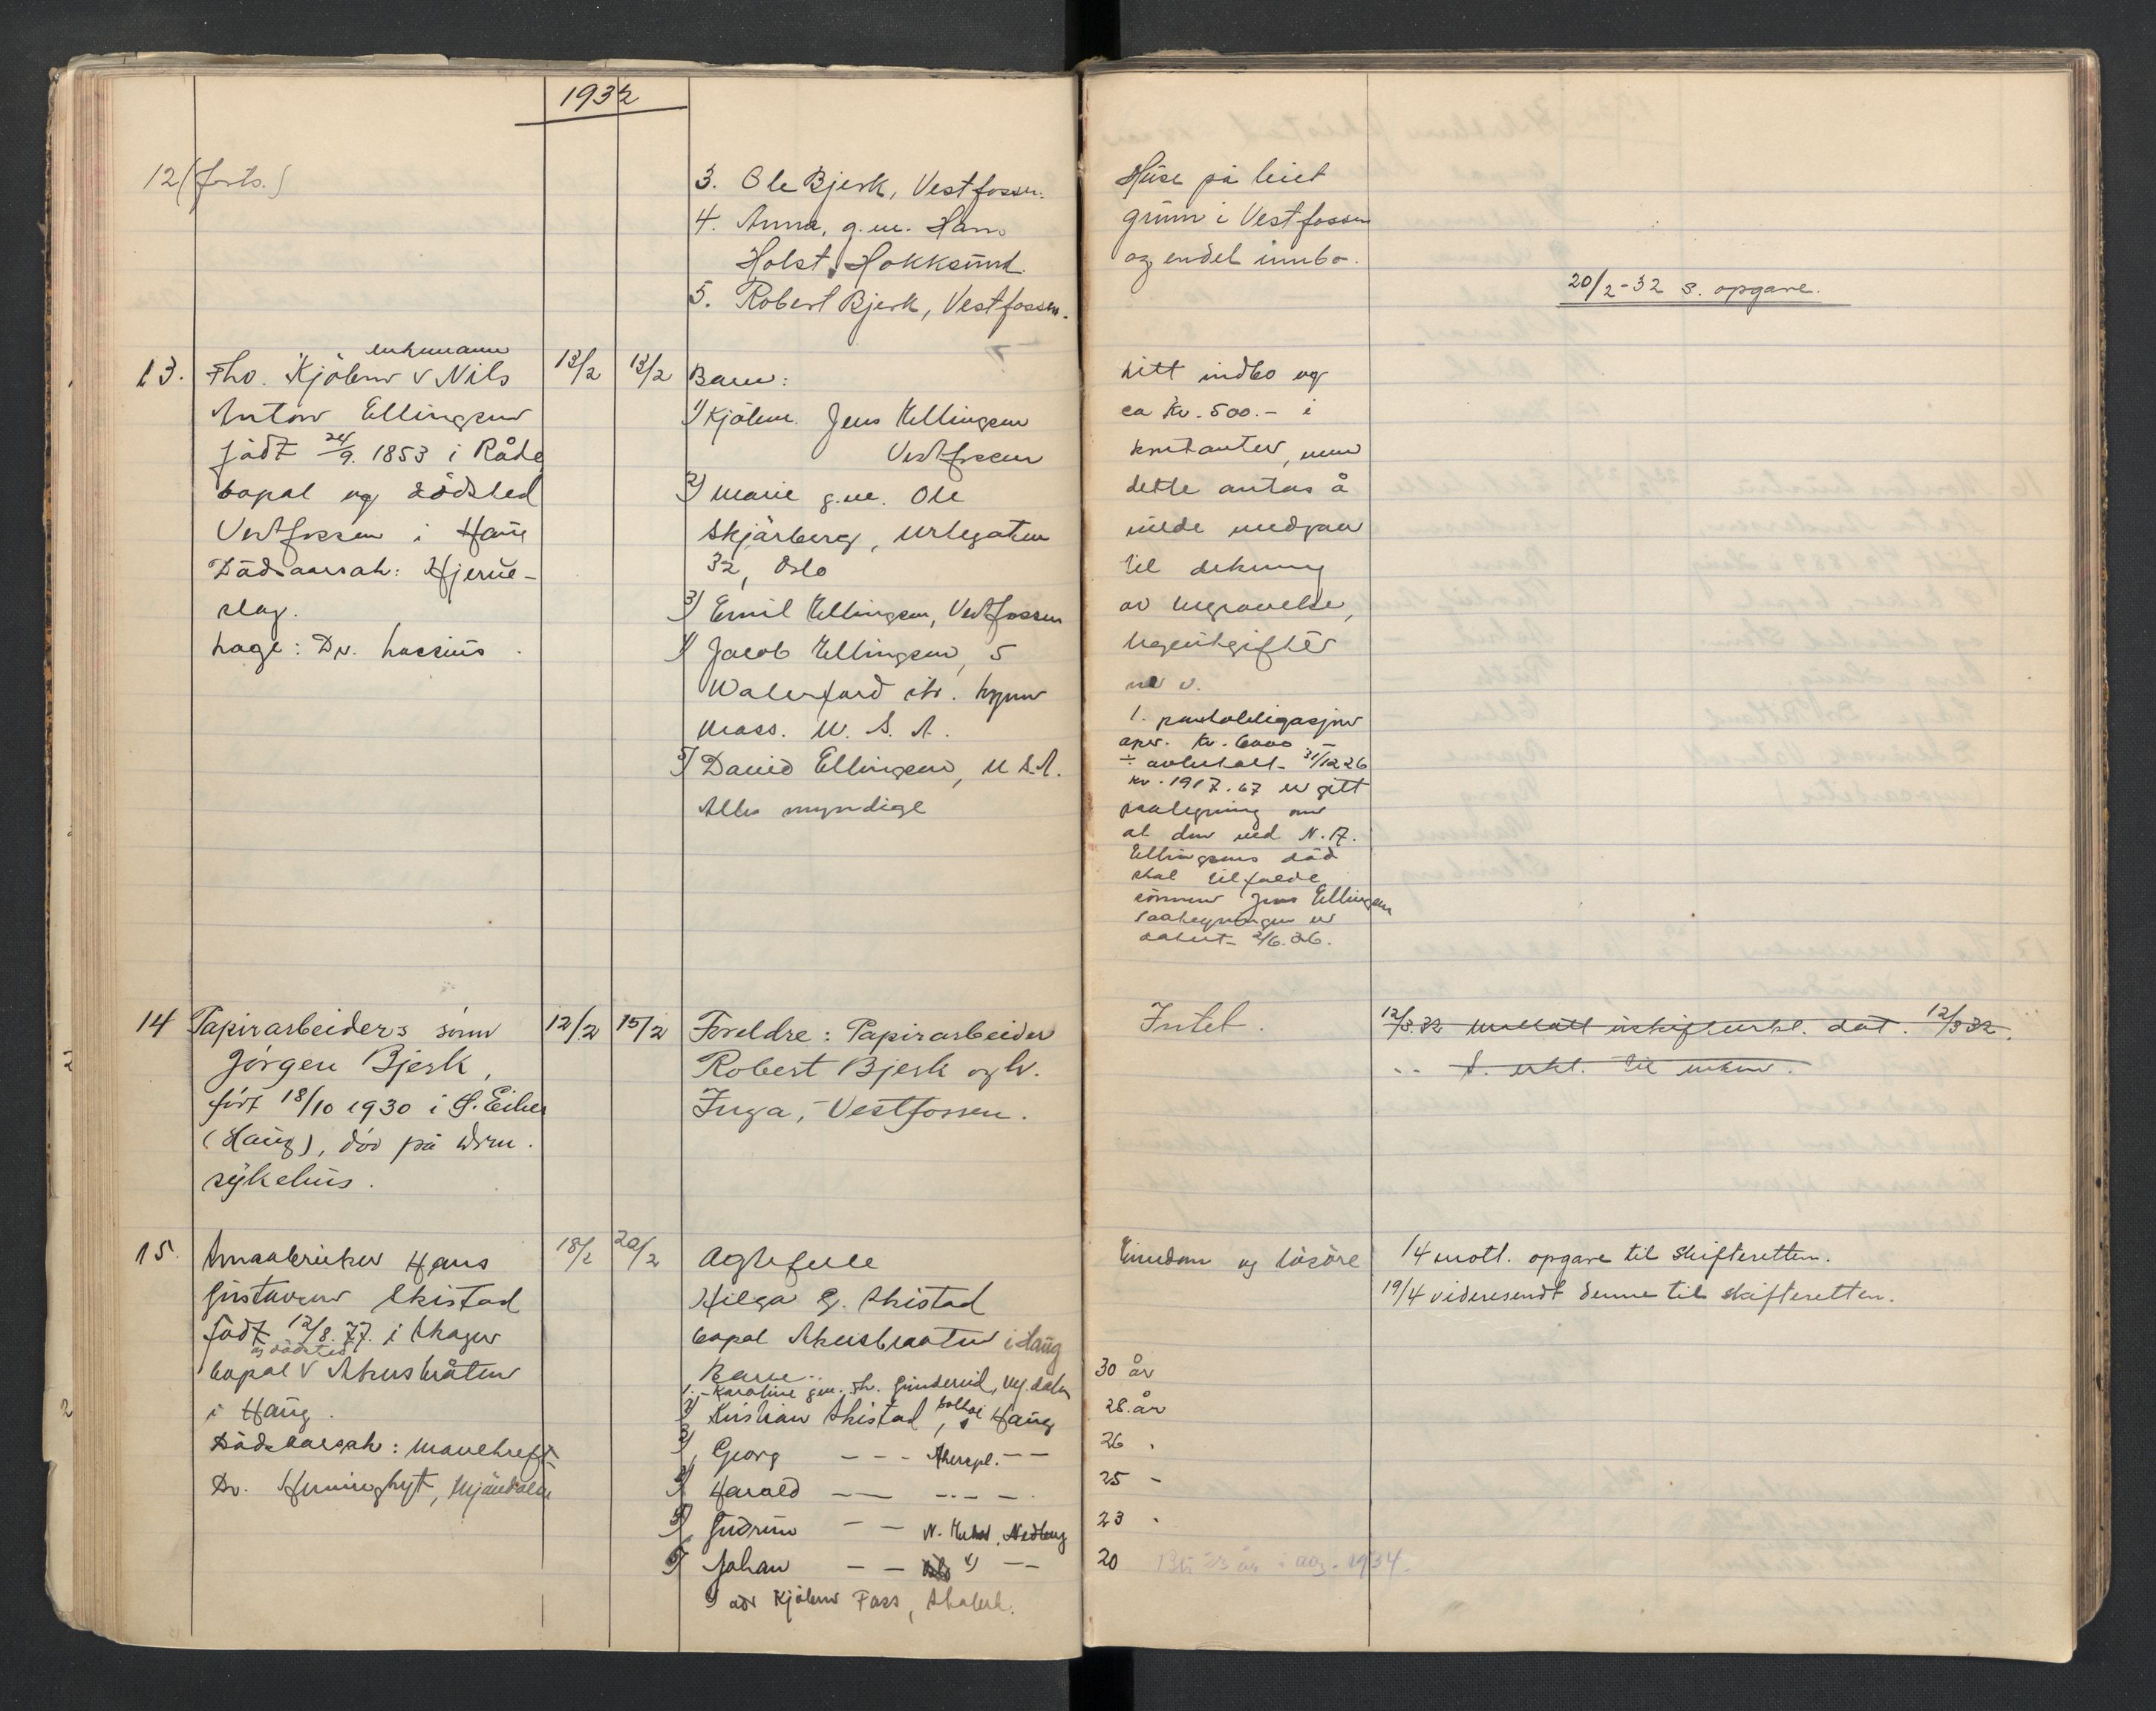 1932
12 (forts.)
3. Ole Bjerk, Vestfossen.
4. Anna, g.m. Hans
Holst, Hokksund.
5. Robert Bjerk, Vestfossen.
Huse på leiet
grunn i Vestfossen
og endel innbo.
20/2-32 s. opgave.
13.
enkemann
Fhv. Kjøbm v Nils
Anton Ellingsen
født 24/9. 1853 i Råde
bopæl og dödsted
Vestfossen i Haug
Dödsaarsak: Hjerne-
slag.
Læge: Dr. Lassius.
13/2
13/2
Barn:
1) Kjöbm. Jens Ellingsen
Vestfossen
2) Marie g.m. Ole
Skjårberg, Urtegaten
32, Oslo
3) Emil Ellingsen, Vestfossen
4) Jacob Ellingsen, 5
Waterford str. Lynn
Mass. U. S. A.
5) David Ellingsen, U S A.
Alle myndige
Litt indbo og
ca Kr. 500.- i
kontanter, men
dette antas å
ville medgaa
til dekning
av begravelse,
lægeutgifter
m v.
1. pantobligasjon
opr. Kr. 6000 -
÷ avbetalt 31/12 26
kr. 1917.67 er gitt
paategning om
at den ved N. A.
Ellingsens död
skal tilfalde
sönnen Jens Ellingsen
Paategningen er
datert 2/6.26.
14
Papirarbeiders sönn
Jörgen Bjerk,
född 18/10 1930 i Ö. Eiker
(Haug), död på Drm.
sykehus.
12/2
15/2
Foreldre: Papirarbeider
Robert Bjerk og h.
Inga, Vestfossen.
Intet.
12/3.32 mottatt uskifteerkl. dat. 12/3 32.
" S. erkl. til
15.
Smaabruker Hans
Gustavsen Skistad
född 12/8.77. i Skoger
og dödsted
bopæl v Akersbråten
i Haug.
Dödsaarsak: Mavekreft
Dr. Henning Lyt, Mjöndalen
18/2
20/2
Ægtefelle
Helga G. Skistad
bopæl Akersbraaten i Haug
Barn:
1. Karoline gm. Th. Gundersrud,
2) Kristian Skistad, i Haug
3) Georg - - - Akerspl. - -
4) Harald - - - - -
5) Gudrun - - N. Nedberg
6) Johan - - 1) - -
1) adr Kjöbm Fass, Skotselv.
Eiendom og lösöre
30 år
28. år
26 "
25 -
23 "
20 Blir 23 år i aug. 1934.
14 mott. opgave til skifteretten.
19/4 videresendt denne til skifteretten.